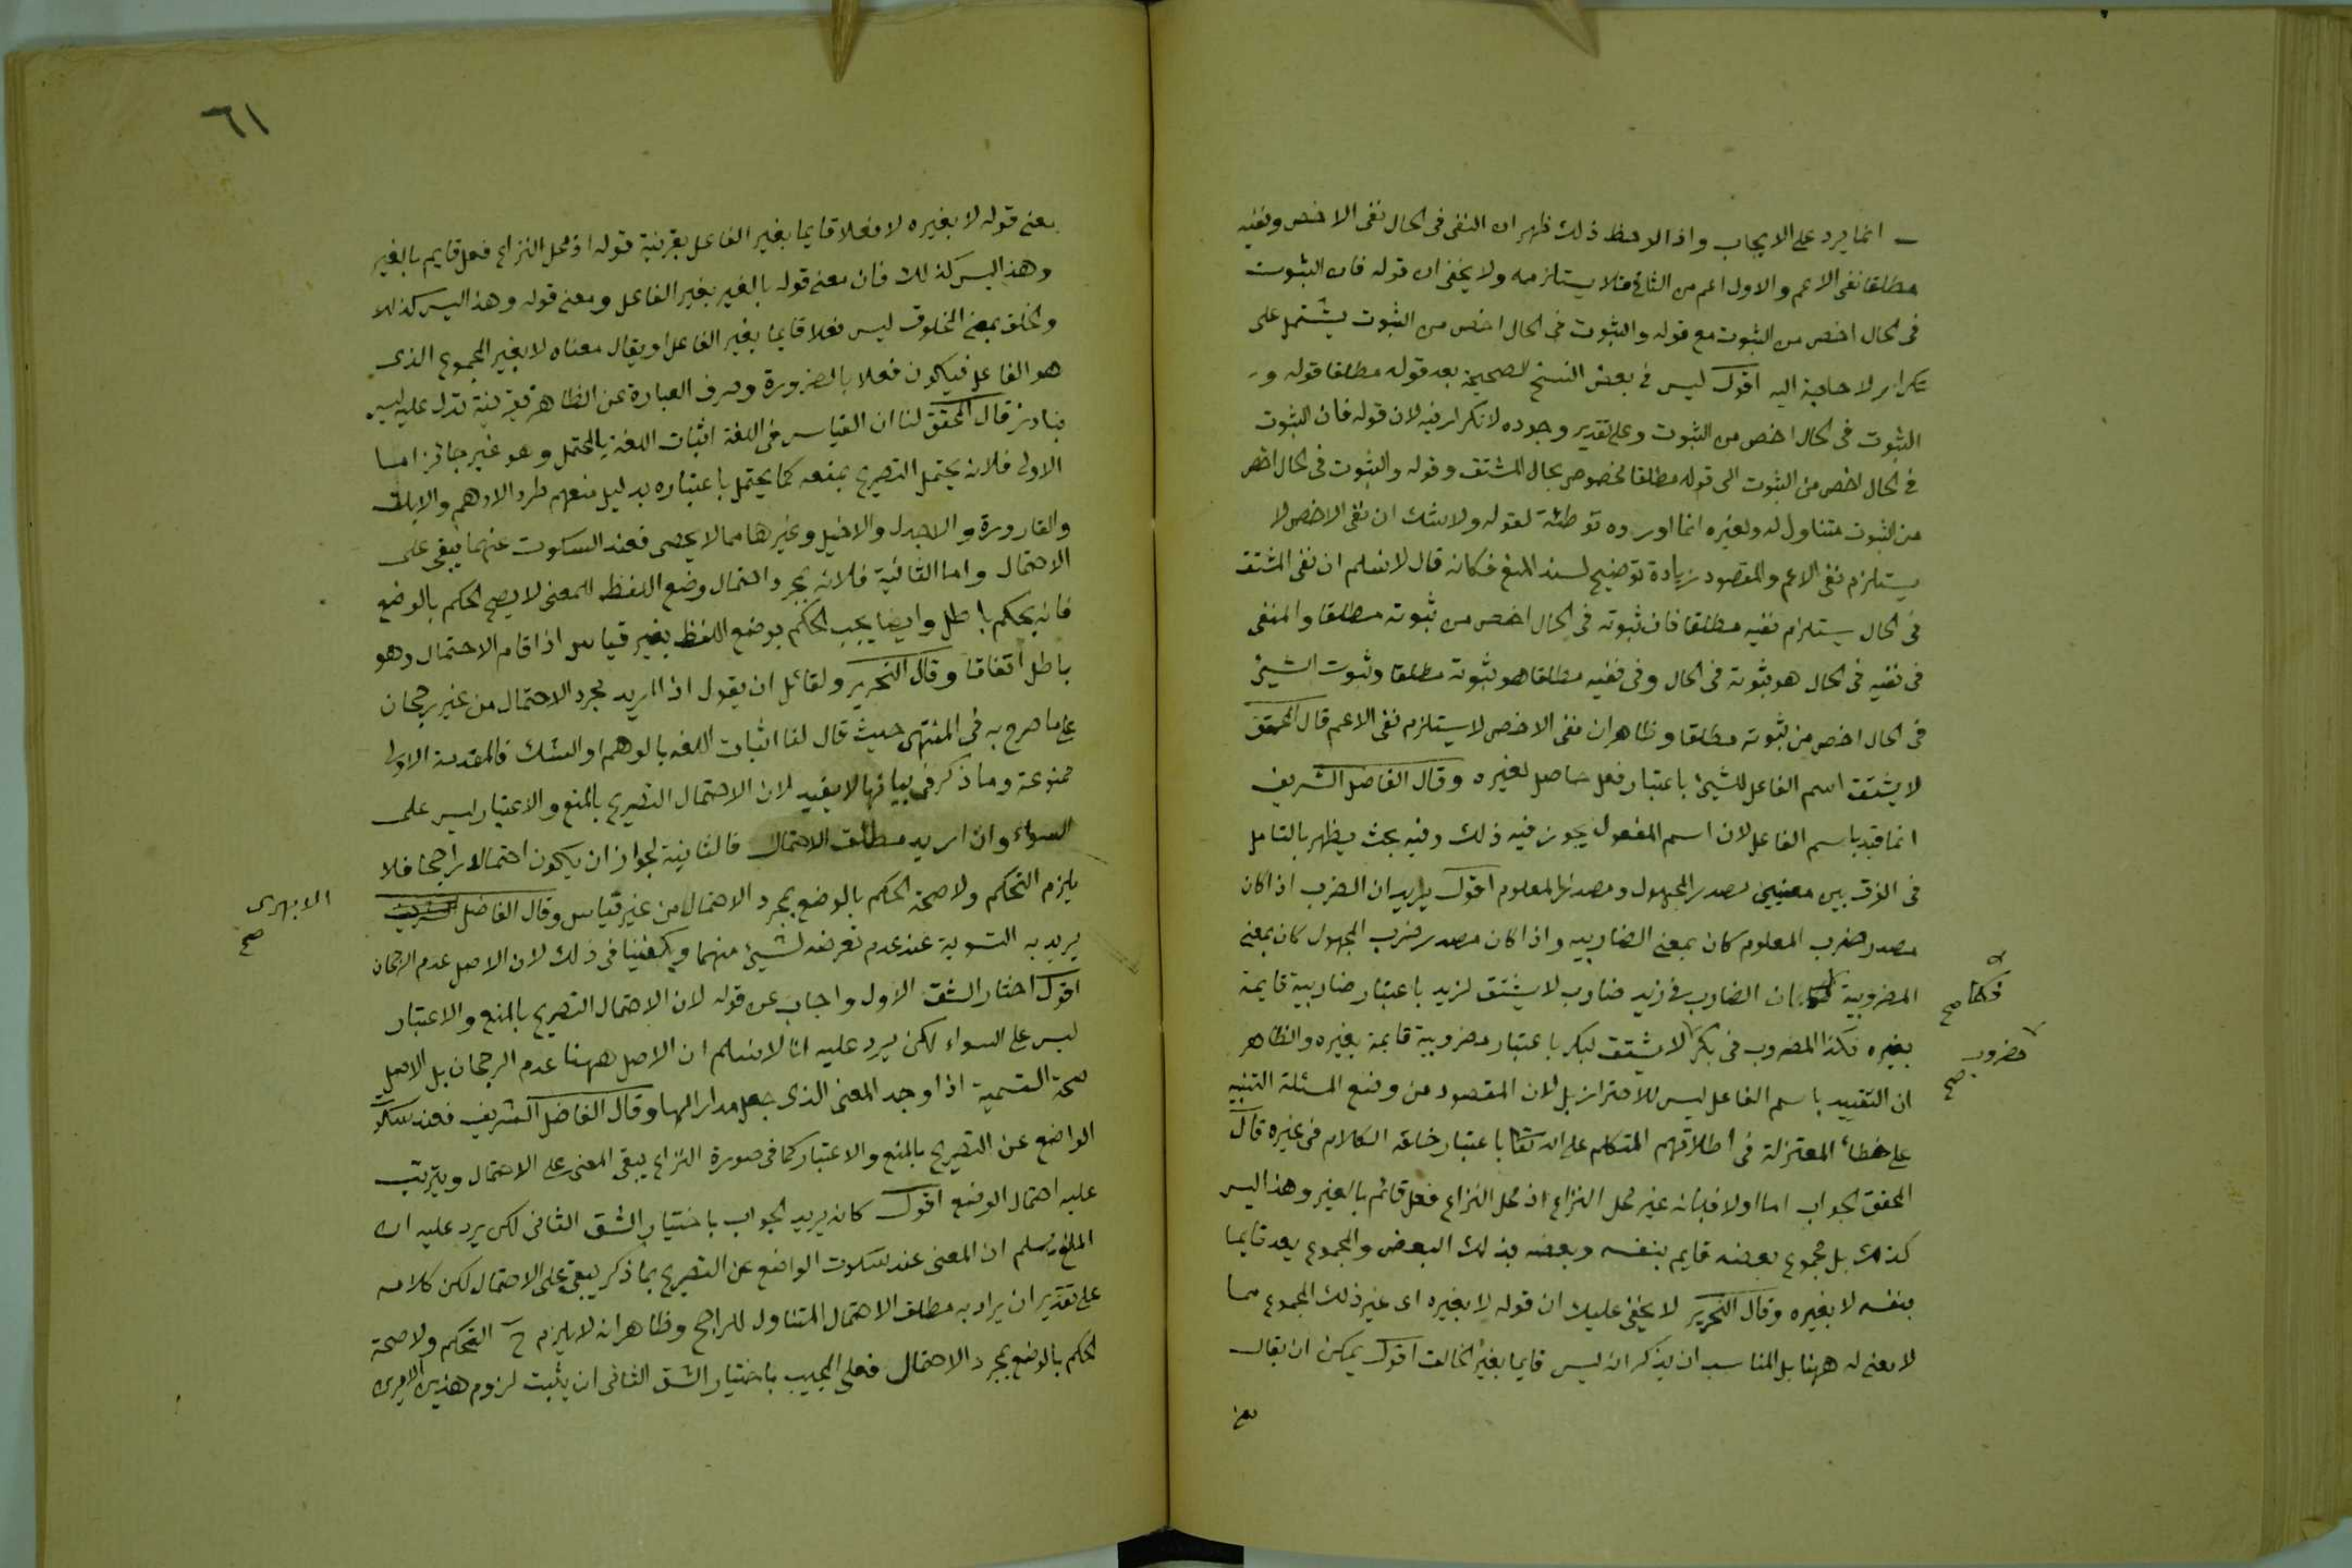 انما يرد على الايجاب واذا لاحظ ذلك ظهر ان النفى فى الحال نفى الاخص ونفيه
مطلقا نفى الاعم والاول اعم من الثانى فلا يستلزمه ولا يخفى ان قوله فان الثبوت
فى الحال اخص من الثبوت مع قوله والثبوت فى الحال اخص من الثبوت يشتمل على
تكرار لا حاجة اليه اقول ليس فى بعض النسخ الصحيحة بعد قوله مطلقا قوله و
الثبوت فى الحال اخص من الثبوت وعلى تقدير وجوده لا تكرار فيه لان قوله فان الثبوت
فى الحال اخص من الثبوت الى قوله مطلقا مخصوص بحال المشتق وقوله والثبوت فى الحال اخص
من الثبوت متناول له ولغيره انما اورده توطئة لقوله ولا شك ان نفى الاخص لا
يستلزم نفى الاعم والمقصود زيادة توضيح لسند المنع فكانه قال لا نسلم ان نفى المشتق
فى الحال يستلزم نفيه مطلقا فان ثبوته فى الحال اخص من ثبوته مطلقا والمنفى
فى نفيه فى الحال هو ثبوته فى الحال وفى نفيه مطلقا هو ثبوته مطلقا وثبوت الشيئ
فى الحال اخص من ثبوته مطلقا وظاهر ان نفى الاخص لا يستلزم نفى الاعم قال المحقق
لا يشتق اسم الفاعل للشيئ باعتبار فعل حاصل لغيره وقال الفاضل الشريف
انما قيد باسم الفاعل لان اسم المفعول يجوز فيه ذلك وفيه بحث يظهر بالتامل
فى الفرق بين معنيى مصدر المجهول ومصدر المعلوم اقول يريد ان الضرب اذا كان
مصدر ضرب المعلوم كان بمعنى الضاربيه واذا كان مصدر ضرب المجهول كان بمعنى
المضروبية ان الضارب فى زيد ضارب لا يشتق لزيد باعتبار ضاربية قايمة
فكما صح
بغيره فكذا المضروب فى بكر لا يشتق لبكر باعتبار مضروبية قايمة بغيره والظاهر
مضروب صح
ان التقييد باسم الفاعل ليس للاحتراز بل لان المقصود من وضع المسئلة التنبيه
على خطأ المعتزلة فى اطلاقهم المتكلم على الله تعا باعتبار خلقه الكلام فى غيره قال
المحقق الجواب اما اولا فبانه غير محل النزاع اذ محل النزاع فعل قائم بالغير وهذا ليس
كذلك بل مجموع بعضه قايم بنفسه وبعضه بذلك البعض والمجموع يعد قايما
بنفسه لا بغيره وقال النحرير لا يخفى عليك ان قوله لا بغيره اى غير ذلك المجموع مما
لا معنى له ههنا بل المناسب ان يذكر انه ليس قايما بغير الخالق اقول يمكن ان يقال
معنى
٦١
معنى قوله لا بغيره لا فعلا قايما بغير الفاعل بقرينة قوله اذ محل النزاع فعل قايم بالغير
وهذا ليس كذلك فان معنى قوله بالغير بغير الفاعل ومعنى قوله وهذا ليس كذلك
والخلق بمعنى المخلوق ليس فعلا قايما بغير الفاعل او يقال معناه لا بغير المجموع الذى
هو الفاعل فيكون فعلا بالضرورة وصرف العبارة عن الظاهر بقرينة تدل عليه ليس
بنادر قال المحقق لنا ان القياس فى اللغة اثبات اللغة بالمحتمل وهو غير جائز اما
الاولى فلانه يحتمل التصريح بمنعه كما يحتمل باعتباره بدليل منعهم طرد الادهم والابلق
والقارورة والاجدل والاخيل وغيرها مما لا يحصى فعند السكوت عنهما يبقى على
الاحتمال واما الثانية فلانه بمجرد احتمال وضع اللفظ للمعنى لا يصح الحكم بالوضع
فانه تحكم باطل وايضا يجب الحكم بوضع اللفظ بغير قياس اذا قام الاحتمال وهو
باطل اتفاقا وقال النحرير ولقائل ان يقول ان اريد مجرد الاحتمال من غير رجحان
على ما صرح به فى المنتهى حيث قال لنا اثبات اللغة بالوهم او الشك فالمقدمة الاولى
ممنوعة وما ذكر فى بيانها لا يفيد لان الاحتمال التصريح بالمنع والاعتبار ليس على
السواء وان اريد مطلق الاحتمال فالثانية لجواز ان يكون احتمالا راجحا فلا
يلزم التحكم ولا صحة الحكم بالوضع بمجرد الاحتمال من غير قياس وقال الفاضل الشريف
الابهرى صح
يريد به التسوية عند عدم تعرضه لشيئ منهما ويكفينا فى ذلك لان الاصل عدم الرجحان
اقول اختار الشق الاول واجاب عن قوله لان الاحتمال التصريح بالمنع والاعتبار
ليس على السواء لكن يرد عليه انا لا نسلم ان الاصل ههنا عدم الرجحان بل الاصل
صحة التسمية اذا وجد المعنى الذى جعل مدارا لها وقال الفاضل الشريف فعند سكوت
الواضع عن التصريح بالمنع والاعتبار كما فى صورة النزاع يبقى المعنى على الاحتمال ويترتب
عليه احتمال الوضع اقول كانه يريد الجواب باختيار الشق الثانى لكن يرد عليه ان
المانع يسلم ان المعنى عند سكوت الواضع عن التصريح بما ذكر يبقى على الاحتمال لكن كلامه
على تقدير ان يراد به مطلق الاحتمال المتناول للراجح وظاهر انه لا يلزم ح التحكم ولا صحة
الحكم بالوضع بمجرد الاحتمال فعلى المجيب باختيار الشق الثانى ان يثبت لزوم هذين الامرين